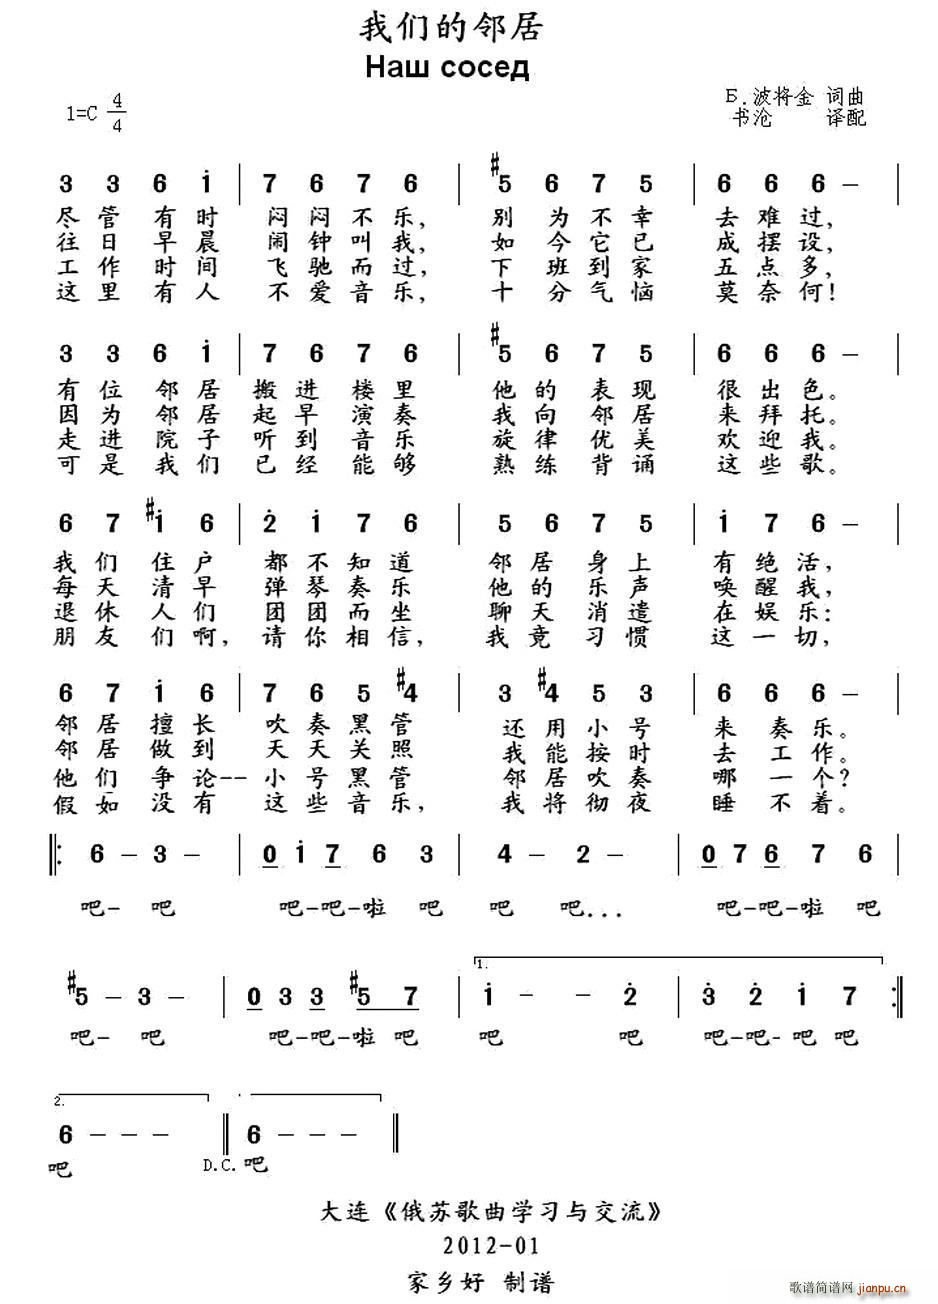 我们的邻居
Наш сосед
1=C 4/4
Б.波将金 词曲
书沧 译配
3 3 6 i | 7 6 7 6 | #5 6 7 5 | 6 6 6 – |
尽管有时 闷闷不乐, 别为不幸 去难过,
往日早晨 闹钟叫我, 如今它已 成摆设,
工作时间 飞驰而过, 下班到家 五点多,
这里有人 不爱音乐, 十分气恼 莫奈何!
3 3 6 i | 7 6 7 6 | #5 6 7 5 | 6 6 6 – |
有位邻居 搬进楼里 他的表现 很出色。
因为邻居 起早演奏 我向邻居 来拜托。
走进院子 听到音乐 旋律优美 欢迎我。
可是我们 已经能够 熟练背诵 这些歌。
6 7 #i 6 | 2 i 7 6 | 5 6 7 5 | i 7 6 – |
我们住户 都不知道 邻居身上 有绝活,
每天清早 弹琴奏乐 他的乐声 唤醒我,
退休人们 团团而坐 聊天消遣 在娱乐:
朋友们啊, 请你相信, 我竟习惯 这一切,
6 7 i 6 | 7 6 5 #4 | 3 #4 5 3 | 6 6 6 – |
邻居擅长 吹奏黑管 还用小号 来奏乐。
邻居做到 天天关照 我能按时 去工作。
他们争论-- 小号黑管 邻居吹奏 哪一个?
假如没有 这些音乐, 我将彻夜 睡不着。
6 – 3 – | 0 i 7 6 3 | 4 – 2 – | 0 7 6 7 6 |
吧- 吧 吧-吧-啦 吧 吧 吧... 吧-吧-啦 吧
1.
#5 – 3 – | 0 3 3 #5 7 | i – – 2 | 3 2 i 7
吧- 吧 吧-吧-啦 吧 吧 吧 吧-吧- 吧 吧
2.
6 – – – 6 – – –
吧 D.C. 吧
大连《俄苏歌曲学习与交流》
2012-01
家乡好 制谱
歌谱简谱网 jianpu.cn